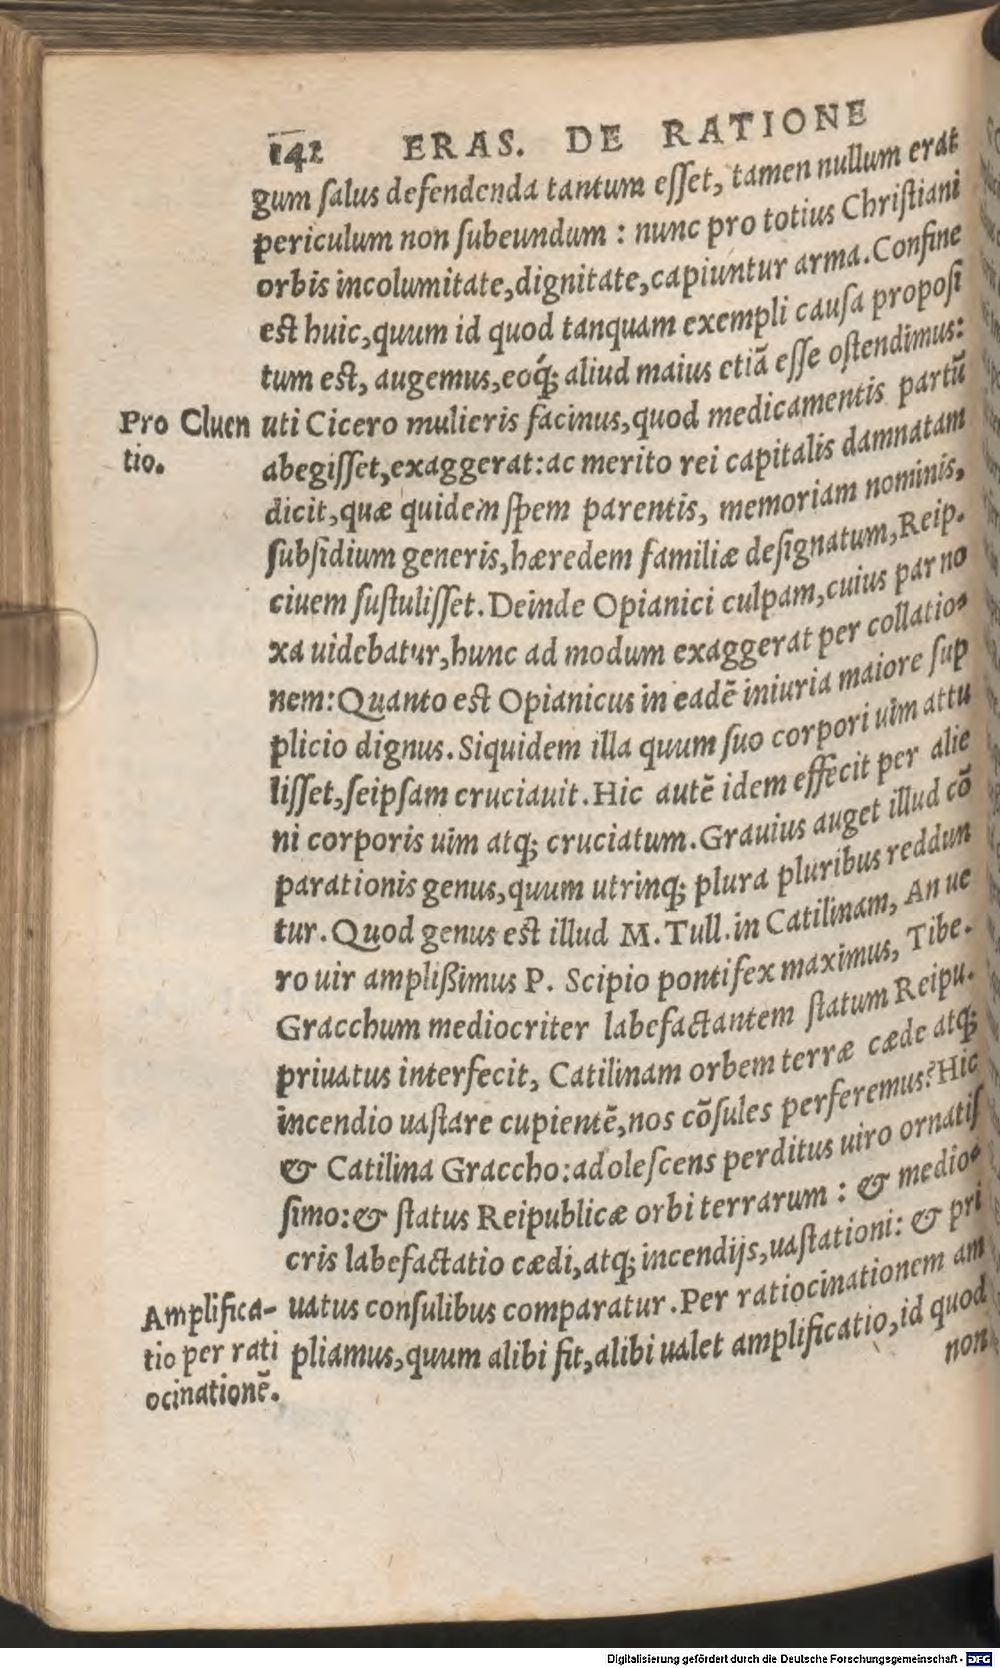 142 ERAS. DE RATIONE
gum ſalus defendenda tantum eſſet, tamen nullum erat
periculum non ſubeundum : nunc pro totius Chriſtiani
orbis incolumitate,dignitate,capiuntur arma.Confine
est huic,quum id quod tanquam exempli cauſa propoſi
tum est, augemus,eoq́; aliud maius etiā eſſe oſtendimus:
Pro Cluen
tio.
uti Cicero mulieris facinus,quod medicamentis partū
abegiſſet,exaggerat:ac merito rei capitalis damnatam
dicit,quæ quidem ſpem parentis, memoriam nominis,
ſubſidium generis,hæredem familiæ deſignatum,Reip.
ciuem ſuſtuliſſet.Deinde Opianici culpam,cuius par no
xa uidebatur,hunc ad modum exaggerat per collatio-
nem:Quanto est Opianicus in eadē iniuria maiore ſup
plicio dignus.Siquidem illa quum ſuo corpori uim attu
liſſet,ſeipſam cruciauit.Hic autē idem effecit per alie
ni corporis uim atq; cruciatum.Grauius auget illud cō
parationis genus,quum utrinq; plura pluribus reddun
tur.Quod genus est illud M.Tull.in Catilinam, An ue
ro uir amplißimus P. Scipio pontifex maximus, Tibe.
Gracchum mediocriter labefactantem ſtatum Reipu.
priuatus interfecit, Catilinam orbem terræ cæde atq;
incendio uaſtare cupientē,nos cōſules perferemus? Hic
& Catilina Graccho:adoleſcens perditus uiro ornatiſ
ſimo:& ſtatus Reipublicæ orbi terrarum : & medio-
cris labefactatio cædi,atq; incendijs,uaſtationi: & pri
uatus conſulibus comparatur.Per ratiocinationem am
Amplifica-
tio per rati
ocinationē.
pliamus,quum alibi fit,alibi ualet amplificatio,id quod
non
Digitalisierung gefördert durch die Deutsche Forschungsgemeinschaft - DFG